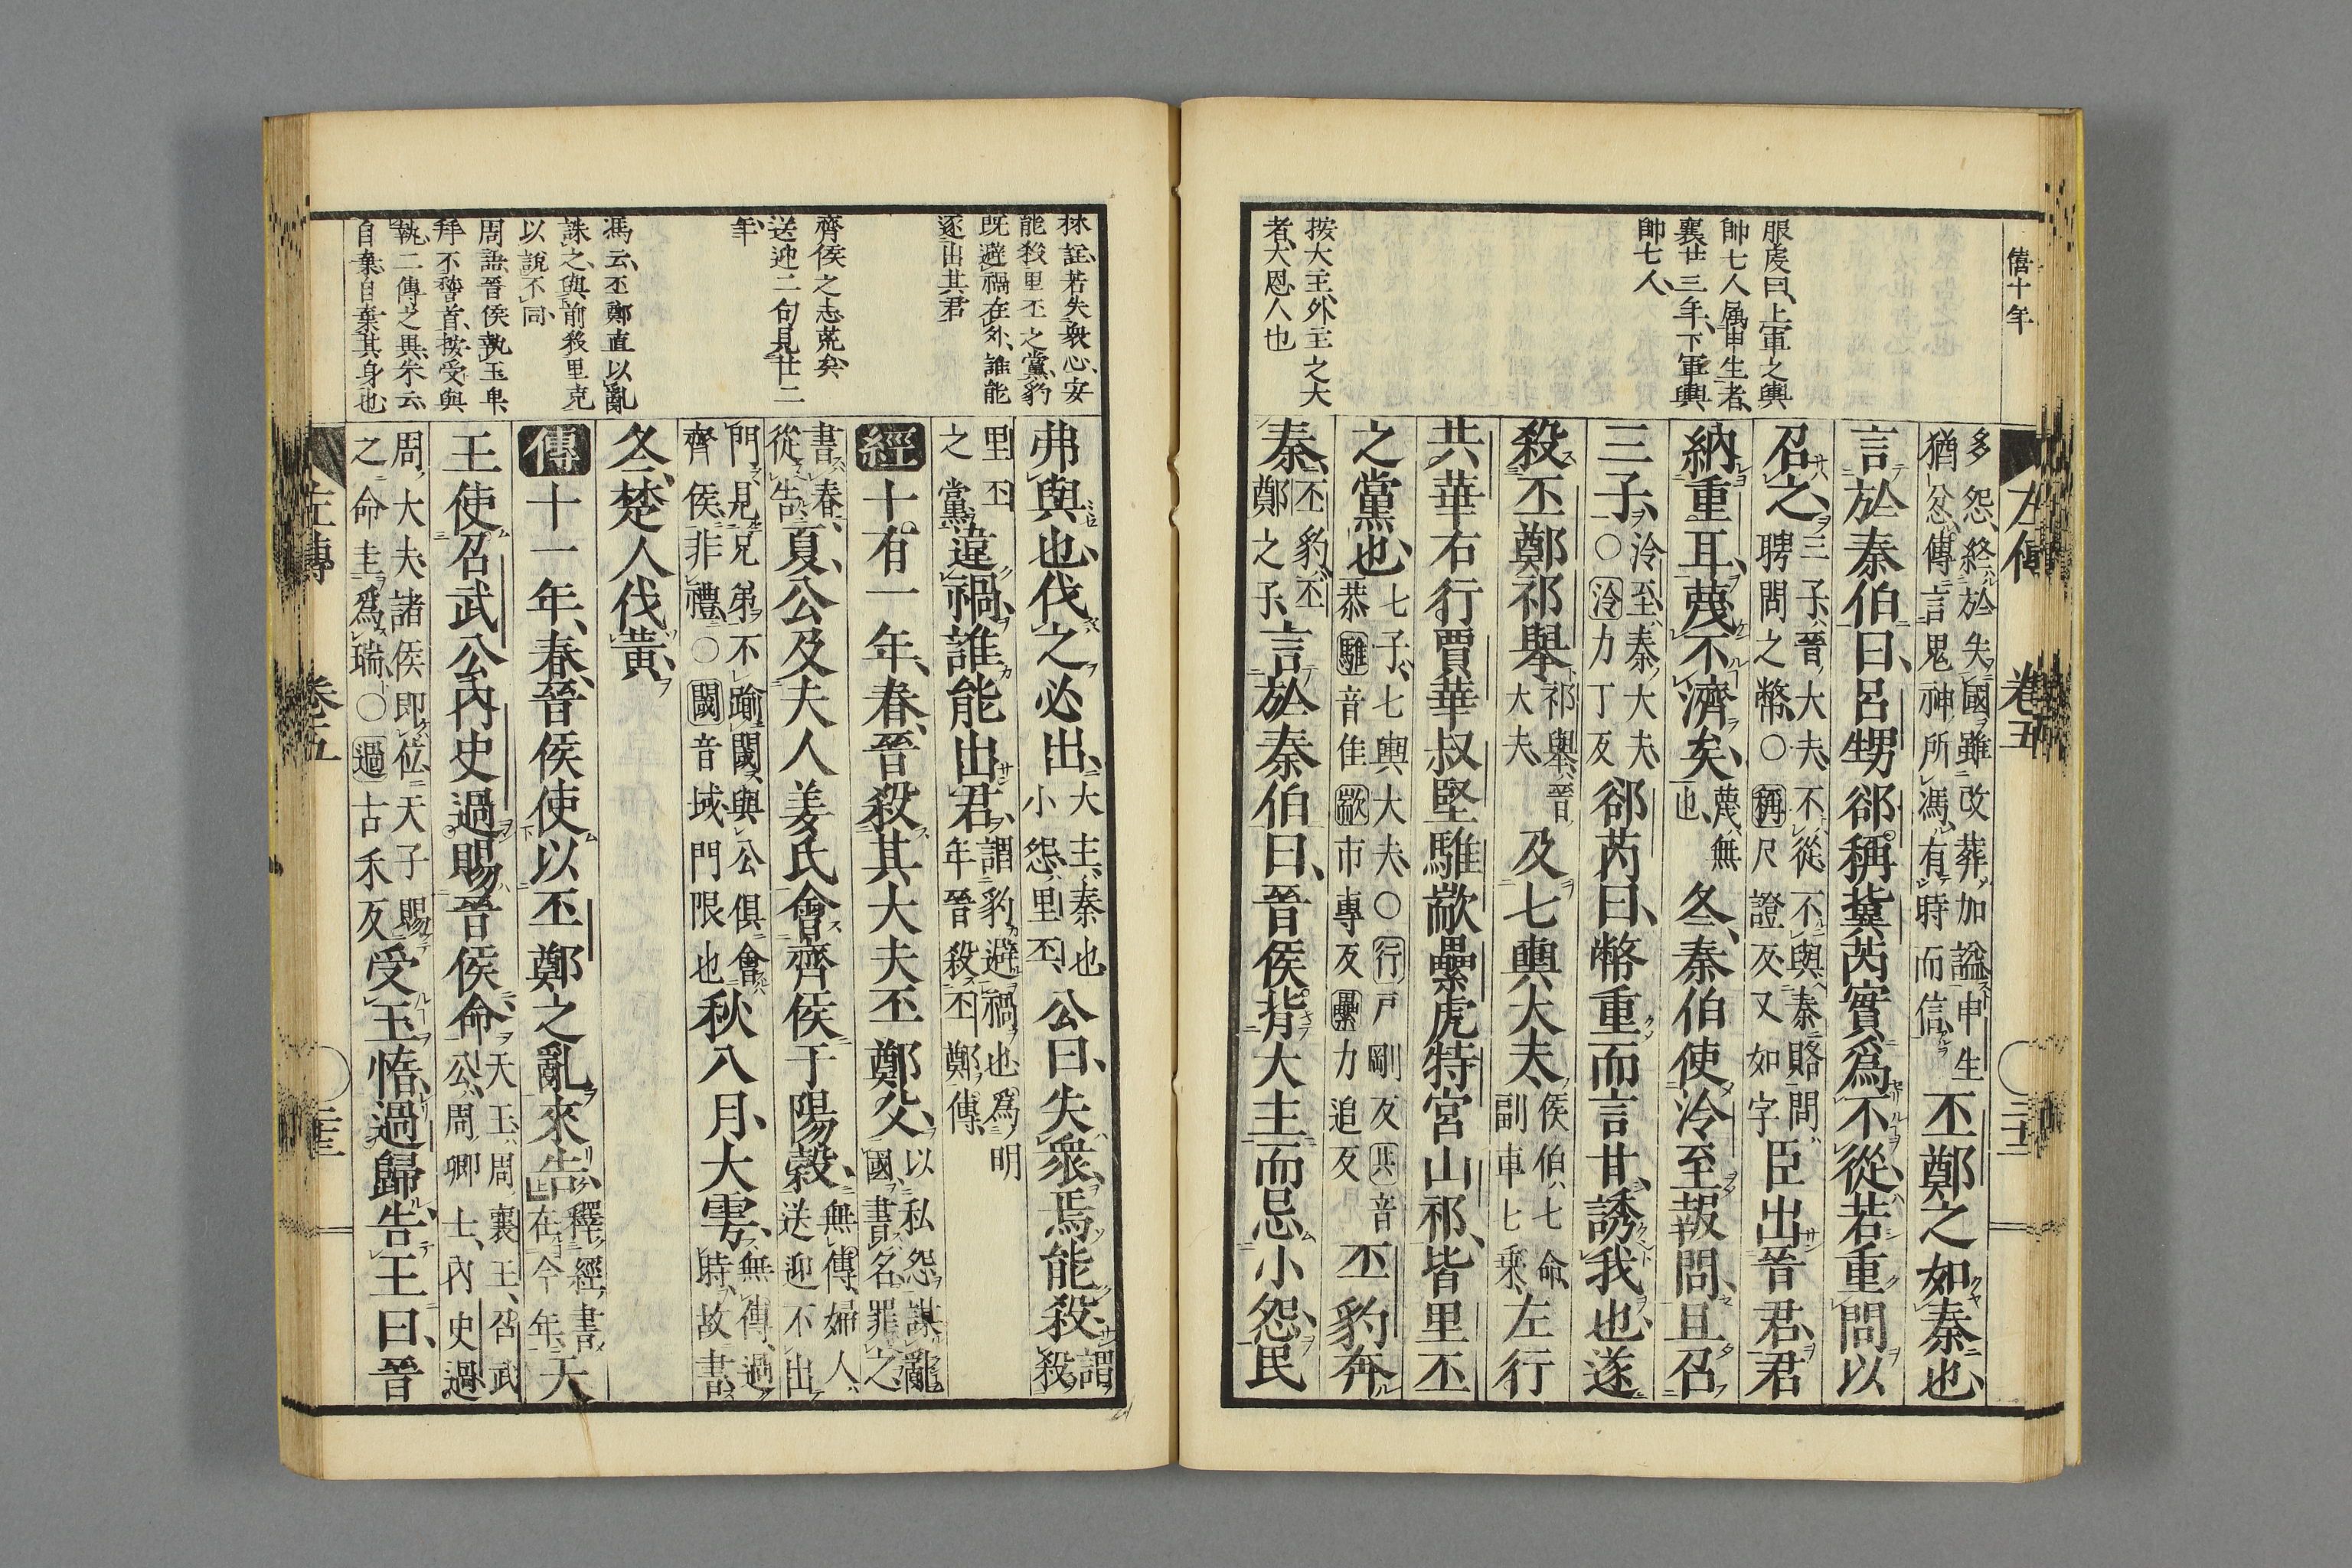 僖十年
左傳 卷五
服虔曰、上軍之輿
帥七人属申生者、
襄廿三年、下軍輿
帥七人、
按大主、外主之大
者、大恩人也
多怨、終於失國、雖改葬加謚申生
猶忿、傳言鬼神所馮、有時而信、
丕鄭之如秦也、
言於秦伯曰、呂甥郤稱冀芮實爲不從、若重問以
召之、
三子、晉大夫、不從、不與秦賂、問、
聘問之幣、○稱尺證反又如字
臣出晉君、君
納重耳、蔑不濟矣、
蔑、無
也、
冬、秦伯使泠至報問、且召
三子、
泠至、秦大夫、
○泠力丁反
郤芮曰、幣重而言甘、誘我也、遂
殺丕鄭祁舉
祁舉、晉
大夫、
及七輿大夫、
侯伯、七命、
副車七乘、
左行
共華右行賈華叔堅騅歂纍虎特宮山祁、皆里丕
之黨也、
七子、七輿大夫、○行戸剛反共音
恭騅音隹歂市專反纍力追反
丕豹奔
秦、
丕豹、丕
鄭之子、
言於秦伯曰、晉侯背大主而忌小怨、民
林註若失衆心、安
能殺里丕之黨、豹
既避禍在外、誰能
逐出其君
齊侯之志荒矣、
送迎二句見廿二
年、
馮云、丕鄭直以亂
誅之、與前殺里克
以說不同、
周語、晉侯執玉卑、
拜不稽首、按受與
執、二傳之異、朱云、
自棄、自棄其身也、
弗與也、伐之必出、
大主、秦也
小怨、里丕、
公曰、失衆、焉能殺、
謂殺
里丕
之黨
違禍、誰能出君、
謂豹避禍也、爲明
年晉殺丕鄭傳、
經十有一年、春、晉殺其大夫丕鄭父、
以私怨謀亂
國、書名、罪之
書春、
從告、
夏、公及夫人姜氏會齊侯于陽穀、
無傳、婦人
送迎不出
門、見兄弟不踰閾、與公俱會
齊侯、非禮、○閾音域門限也
秋八月、大雩、
無傳、過
時、故書、
冬、楚人伐黃、
傳十一年、春、晉侯使以丕鄭之亂來告、
釋經書
在今年、
天
王使召武公內史過賜晉侯命、
天王、周襄王、召武
公、周卿士、內史過
周大夫、諸侯即位、天子賜
之命圭爲瑞、○過古禾反
受玉惰、過歸、告王曰、晉
左傳 卷五